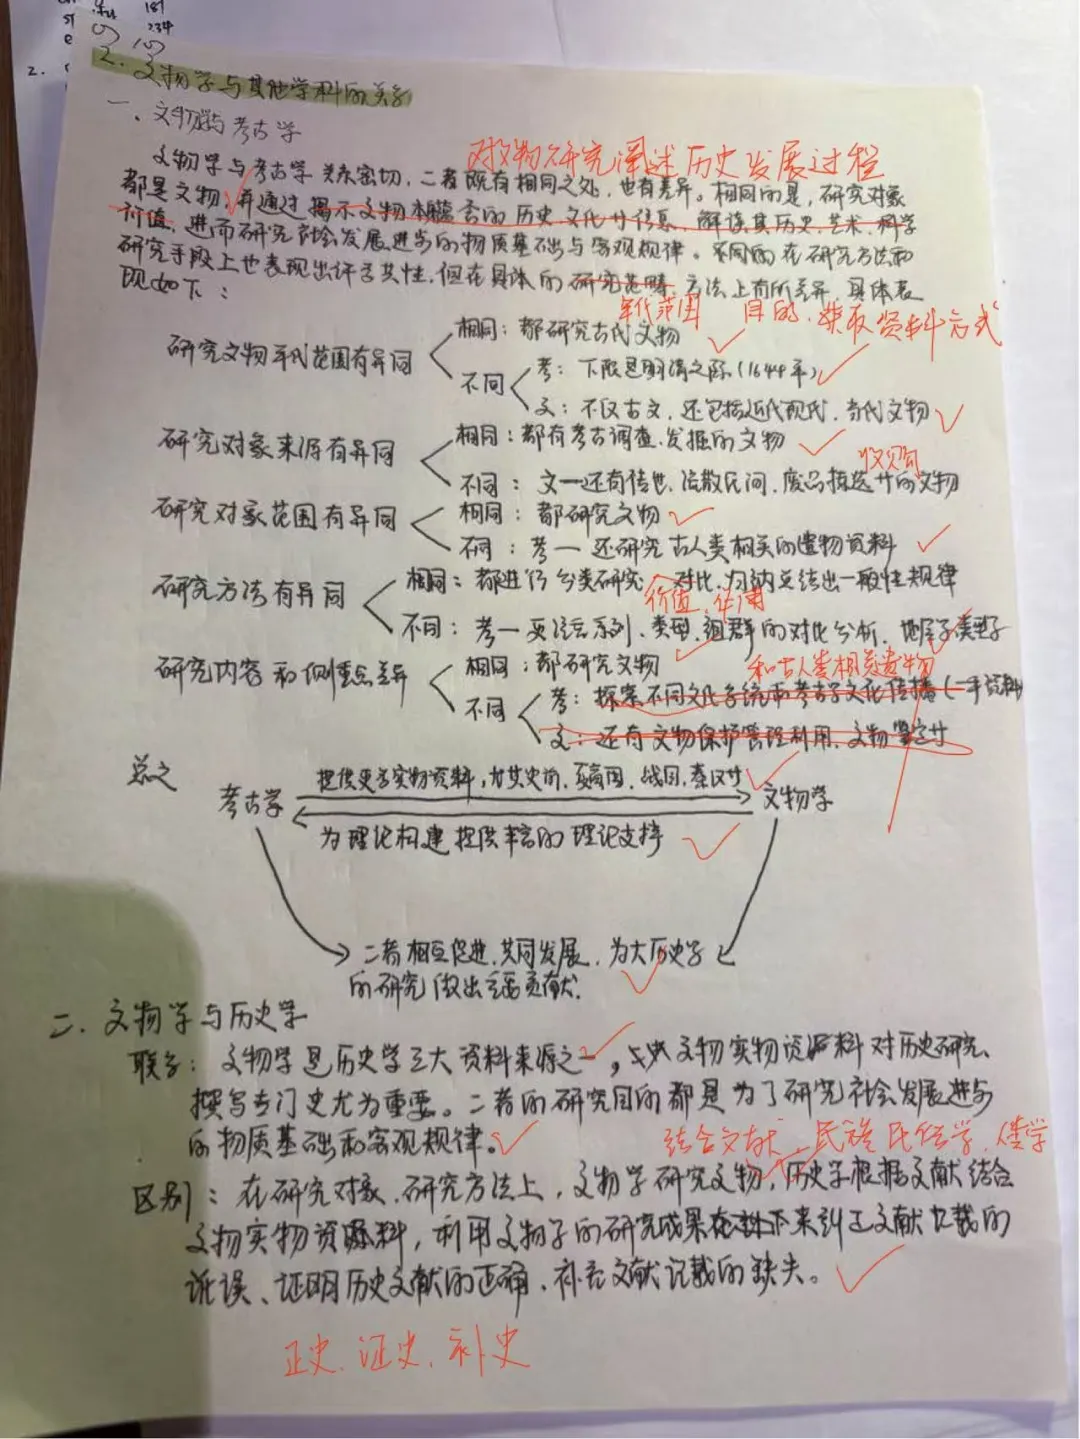 2. 文物学与其他学科的关系
一、文物学与考古学
对文物研究阐述历史发展过程
文物学与考古学关系密切,二者既有相同之处,也有差异。相同的是,研究对象
都是文物,并通过揭示文物本身蕴含的历史文化等信息,解读其历史、艺术、科学
价值,进而研究社会发展进步的物质基础与客观规律。不同的在研究方法和
研究手段上也表现出许多共性,但在具体的研究范畴、方法上有所差异,具体表
现如下:
年代范围 目的、获取资料方式
研究文物年代范围有异同
相同:都研究古代文物
不同
考:下限是明清之际(1644年)
文:不仅古文,还包括近代现代、当代文物
研究对象来源有异同
相同:都有考古调查、发掘的文物
收购
不同:文一还有传世、流散民间、废品拣选等的文物
研究对象范围有异同
相同:都研究文物
不同:考一还研究古人类相关的遗物资料
研究方法有异同
相同:都进行分类研究、对比、归纳总结出一般性规律
价值、作用
不同:考一更注重系列、类型、组群的对比分析,地层学类型学
研究内容和侧重点差异
相同:都研究文物
和古人类相关遗物
不同
考:探索不同文化系统而考古学文化传播(一手资料)
文:还有文物保护管理利用、文物鉴定等
总之
考古学
提供更多实物资料,尤其史前、夏商周、战国、秦汉等
文物学
为理论构建提供丰富的理论支持
二者相互促进、共同发展,为大历史学
的研究做出重要贡献.
二、文物学与历史学
联系:文物学是历史学三大资料来源之一,文物实物资料对历史研究、
撰写专门史尤为重要。二者的研究目的都是为了研究社会发展进步
的物质基础和客观规律。
结合文献、民族民俗学、人类学
区别:在研究对象、研究方法上,文物学研究文物,历史学根据文献结合
文物实物资料,利用文物学的研究成果来纠正文献记载的
讹误、证明历史文献的正确、补充文献记载的缺失。
正史、证史、补史